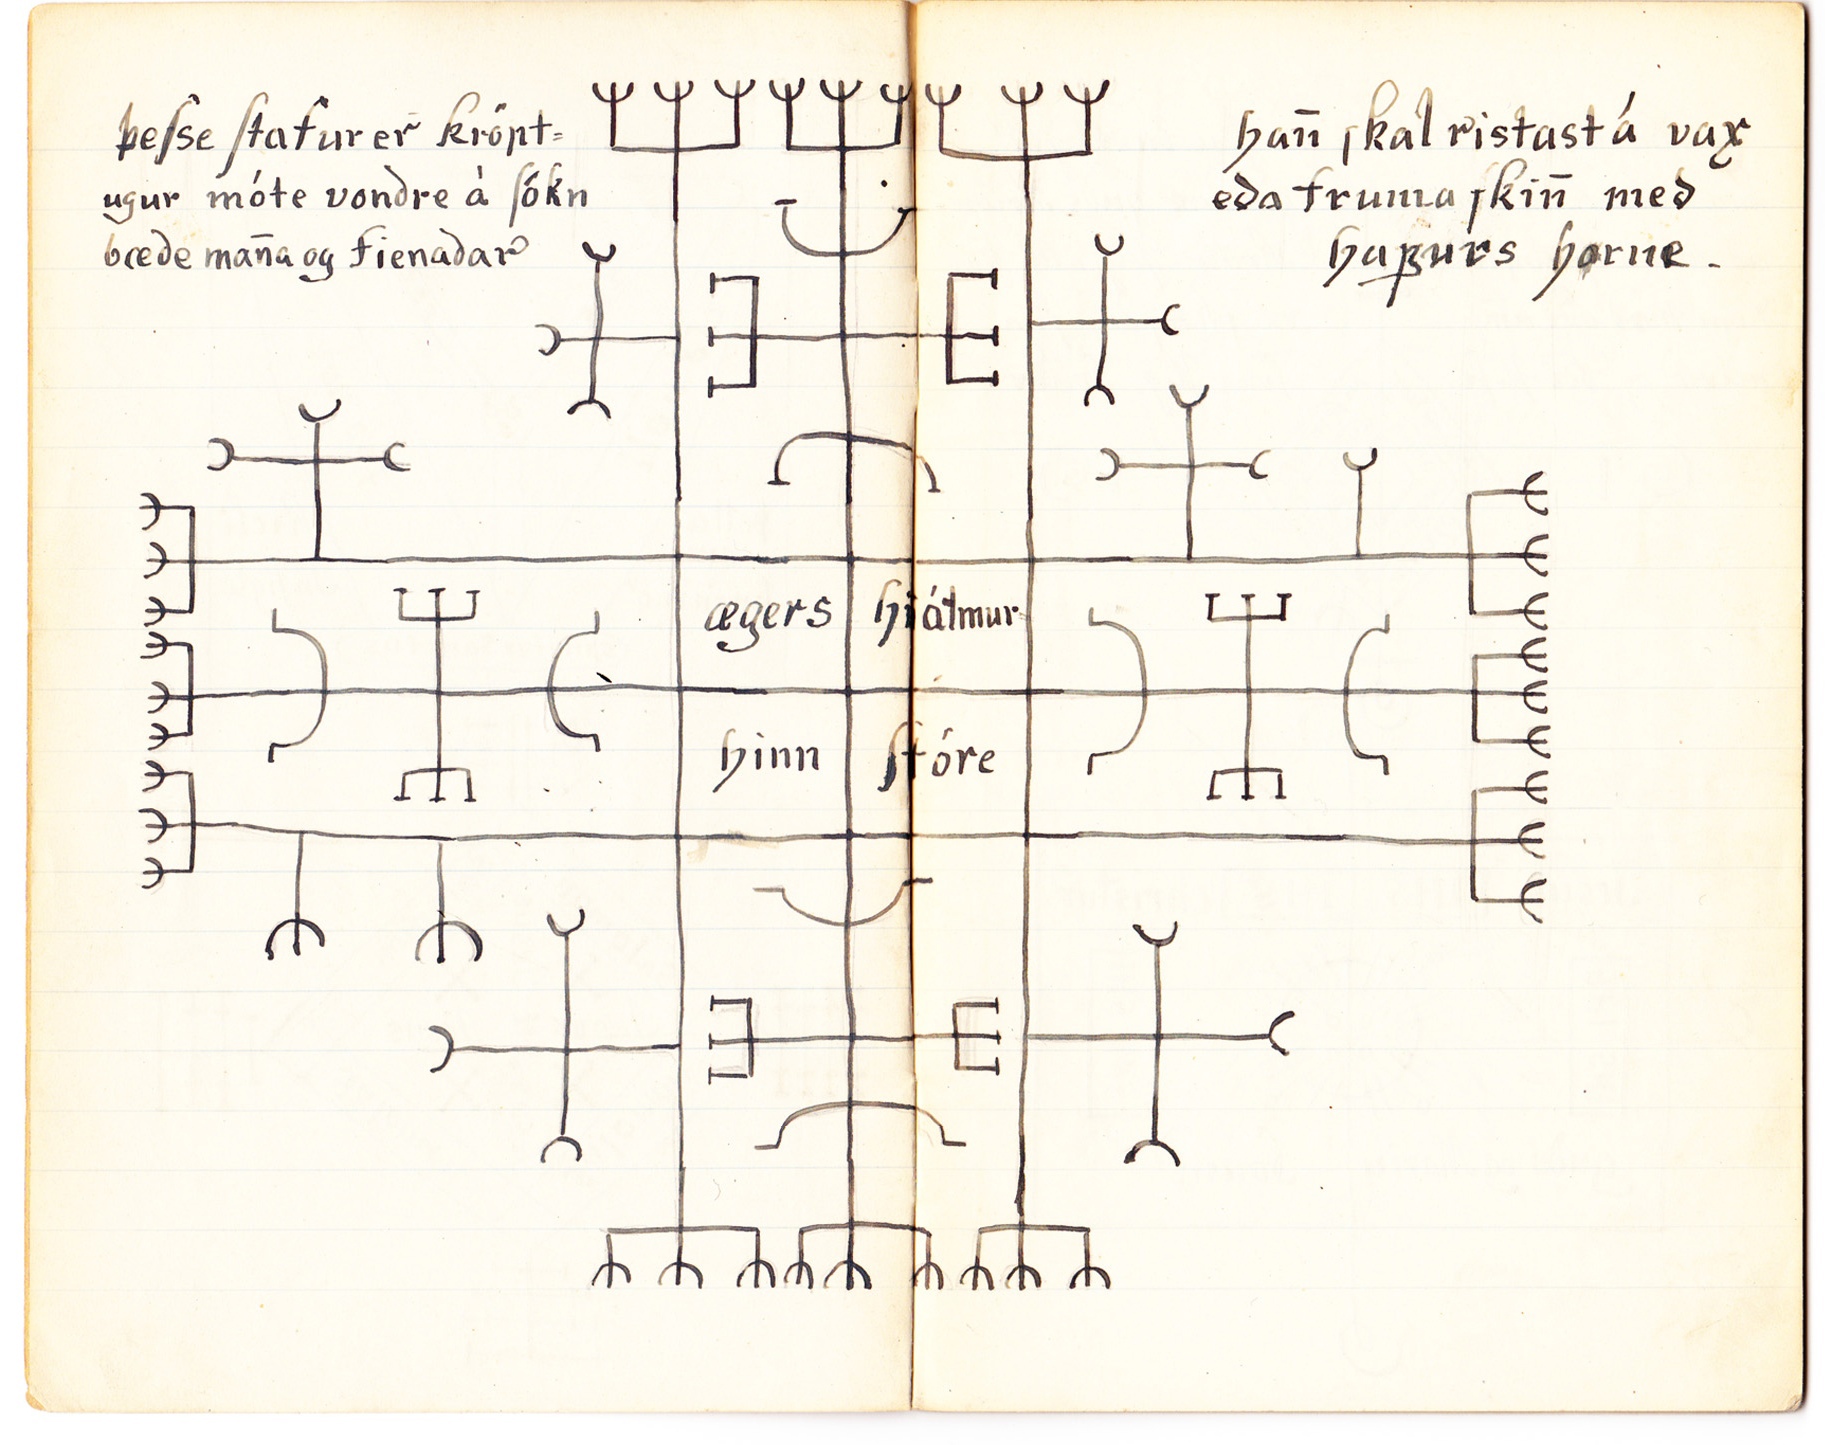 þeſse ſtafur er krópt=
ugur móte vondre á ſókn
bæde man̄a og fienadar
han̄ ſkal ristast á vax
eða truma ſkin̄ með
horne.
ægers hiálmur
hinn ſtóre